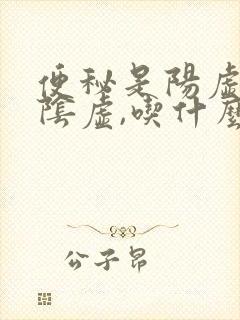 便秘是陽虛
陰虛,喫什麼
公子昂